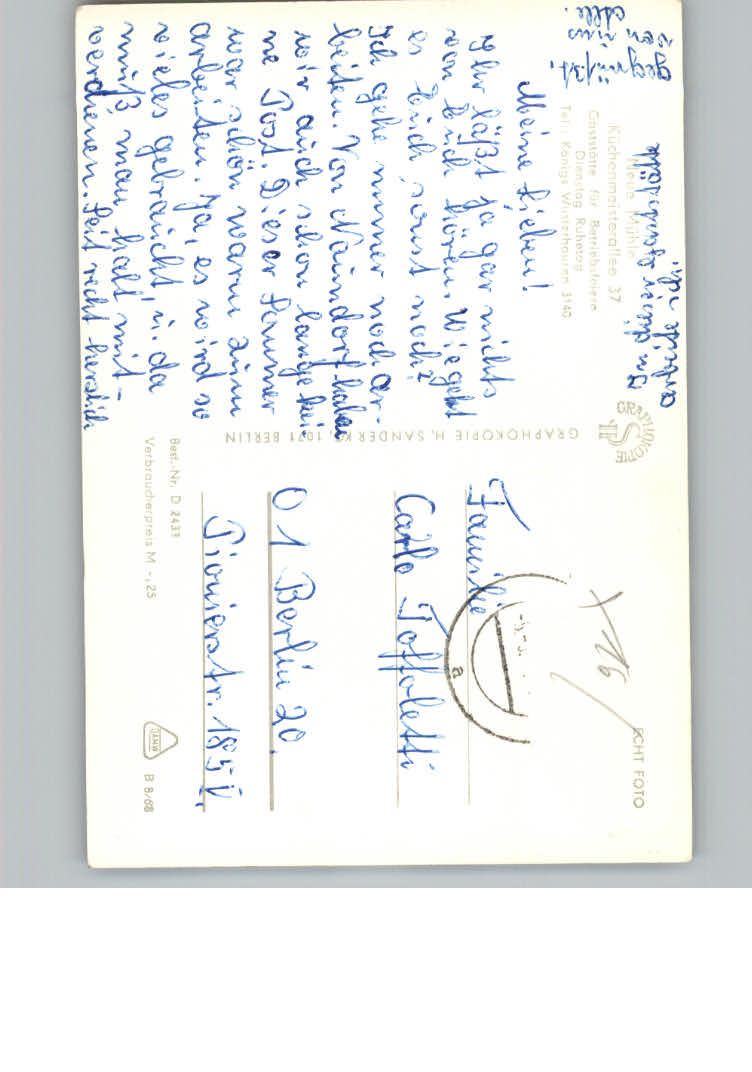 Neue Mühle
Küchenmeisterallee 37
Gaststätte für Betriebsfeiern
Dienstag Ruhetag
Tel.: Königs Wusterhausen 3140
Meine Lieben!
Ihr läßt ja gar nichts
von Euch hören. Wie geht
es Euch sonst noch?
Ich gehe immer noch ar-
beiten. Von Naundorf haben
wir auch schon lange kei-
ne Post. Dieser Sommer
war schön warm zum
arbeiten. Ja, es wird so
vieles gebraucht u. da
muß man halt mit-
verdienen. Seit recht herzlich
gegrüßt
von uns
Alle.
In dieser
arbeite ich.
GRAPHOKOPIE H. SANDER KG, 1071 BERLIN
GRAPHOKOPIE
HS
Best.-Nr. D 2433
Verbraucherpreis M -,25
ECHT FOTO
X 16
a
Familie
Carlo Toffoletti
01 Berlin 20.
Pionierstr. 185
B 8/68